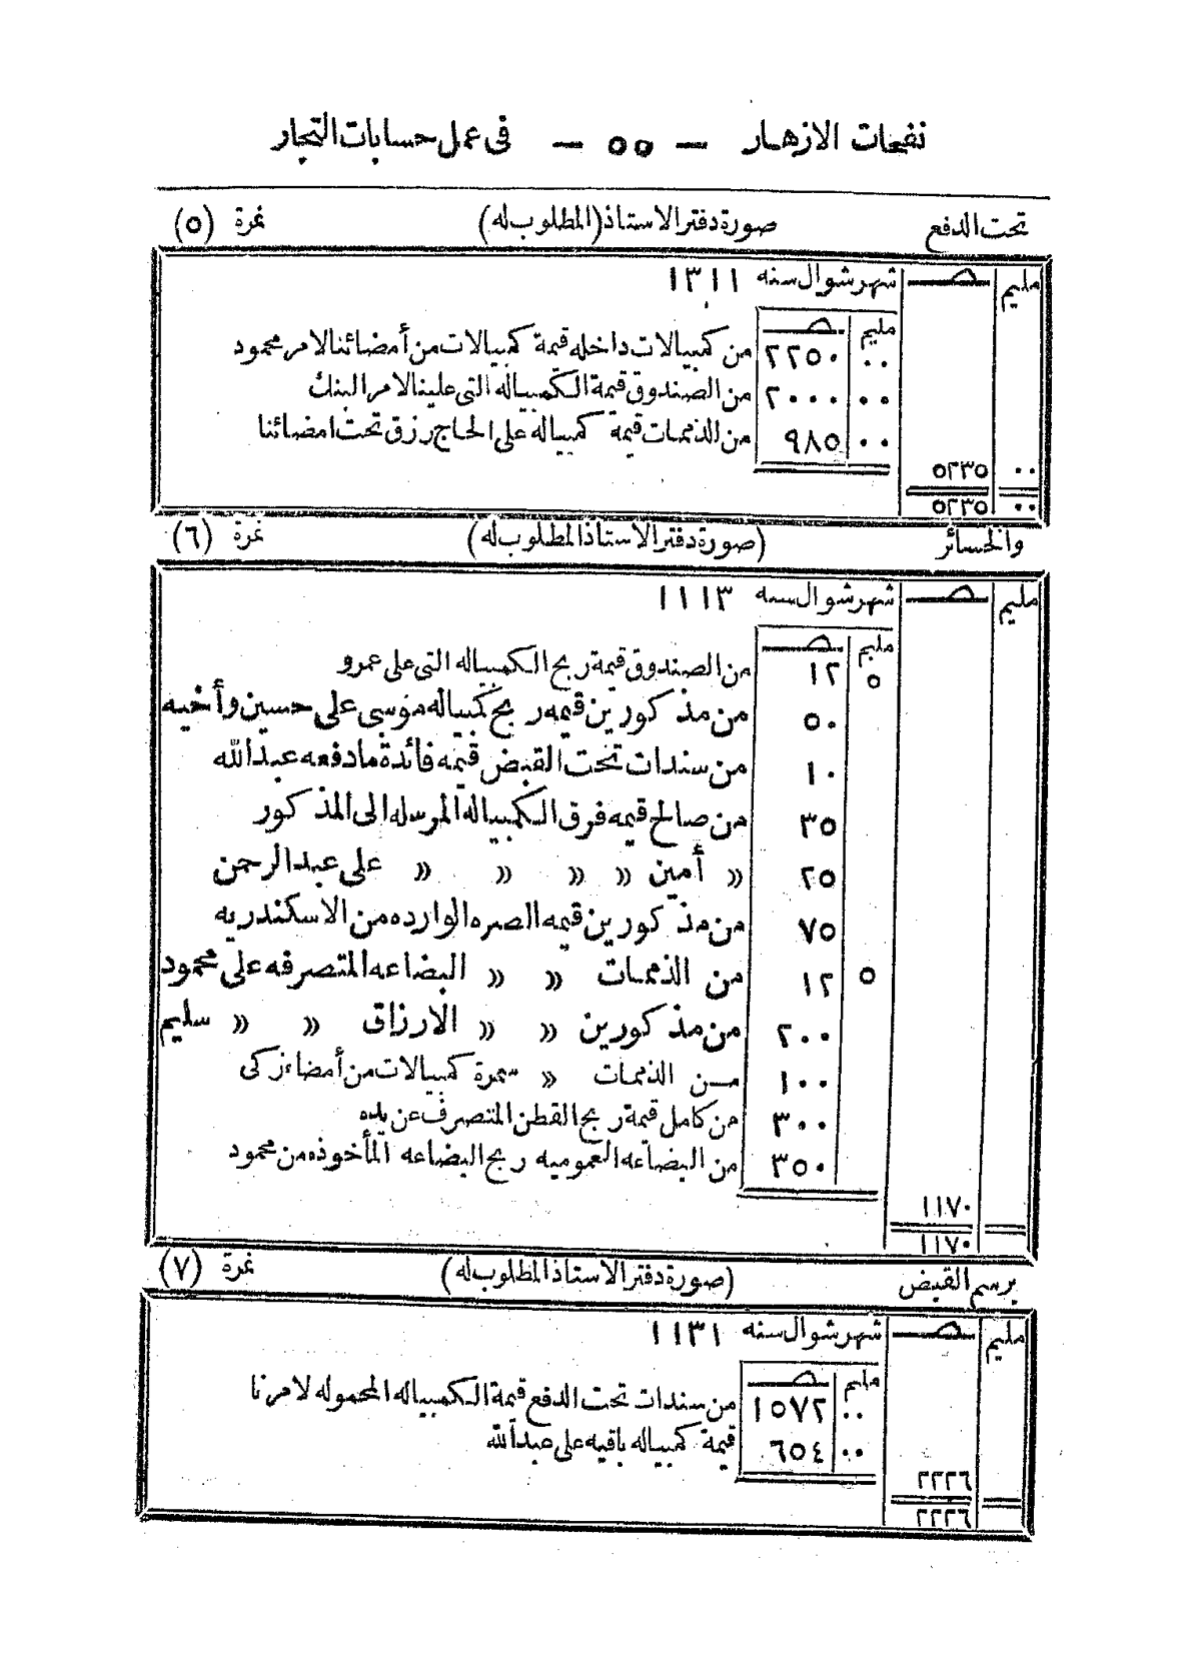 نفحات الازهار — ٥٥ — فى عمل حسابات التجار
تحت الدفع صورة دفتر الاستاذ (المطلوب له) نمرة (٥)
مليم صـ شهر شوال سنه ١٣١١
مليم صـ
٠٠ ٢٢٥٠ من كمبيالات داخله قيمة كمبيالات من أمضائنا لامر محمود
٠٠ ٢٠٠٠ من الصندوق قيمة الكمبياله التى علينا لامر البنك
٠٠ ٩٨٥ من الذممات قيمة كمبياله على الحاج رزق تحت امضائنا
٠٠ ٥٢٣٥
٠٠ ٥٢٣٥
والخسائر (صورة دفتر الاستاذ المطلوب له) نمرة (٦)
مليم صـ شهر شوال سنه ١١١٣
مليم صـ
٥ ١٢ من الصندوق قيمة ربح الكمبياله التى على عمرو
٥٠ من مذكورين قيمه ربح كمبياله موسى على حسين وأخيه
١٠ من سندات تحت القبض قيمه فائدة مادفعه عبد الله
٣٥ من صالح قيمه فرق الكمبياله المرسله الى المذكور
٢٥ « أمين « « « « على عبد الرحمن
٧٥ من مذكورين قيمه الصره الوارده من الاسكندريه
٥ ١٢ من الذممات « « البضاعه المتصرفه على محمود
٢٠٠ من مذكورين « « الارزاق « « سليم
١٠٠ مـن الذممات « سمرة كمبيالات من أمضاء زكى
٣٠٠ من كامل قيمة ربح القطن المتصرف عن يده
٣٥٠ من البضاعه العموميه ربح البضاعه المأخوذه من محمود
١١٧٠
١١٧٠
برسم القبض (صورة دفتر الاستاذ المطلوب له) نمرة (٧)
مليم صـ شهر شوال سنه ١١٣١
مليم صـ
٠٠ ١٥٧٢ من سندات تحت الدفع قيمة الكمبياله المحموله لامرنا
٠٠ ٦٥٤ قيمة كمبياله باقيه على عبد الله
٢٢٢٦
٢٢٢٦